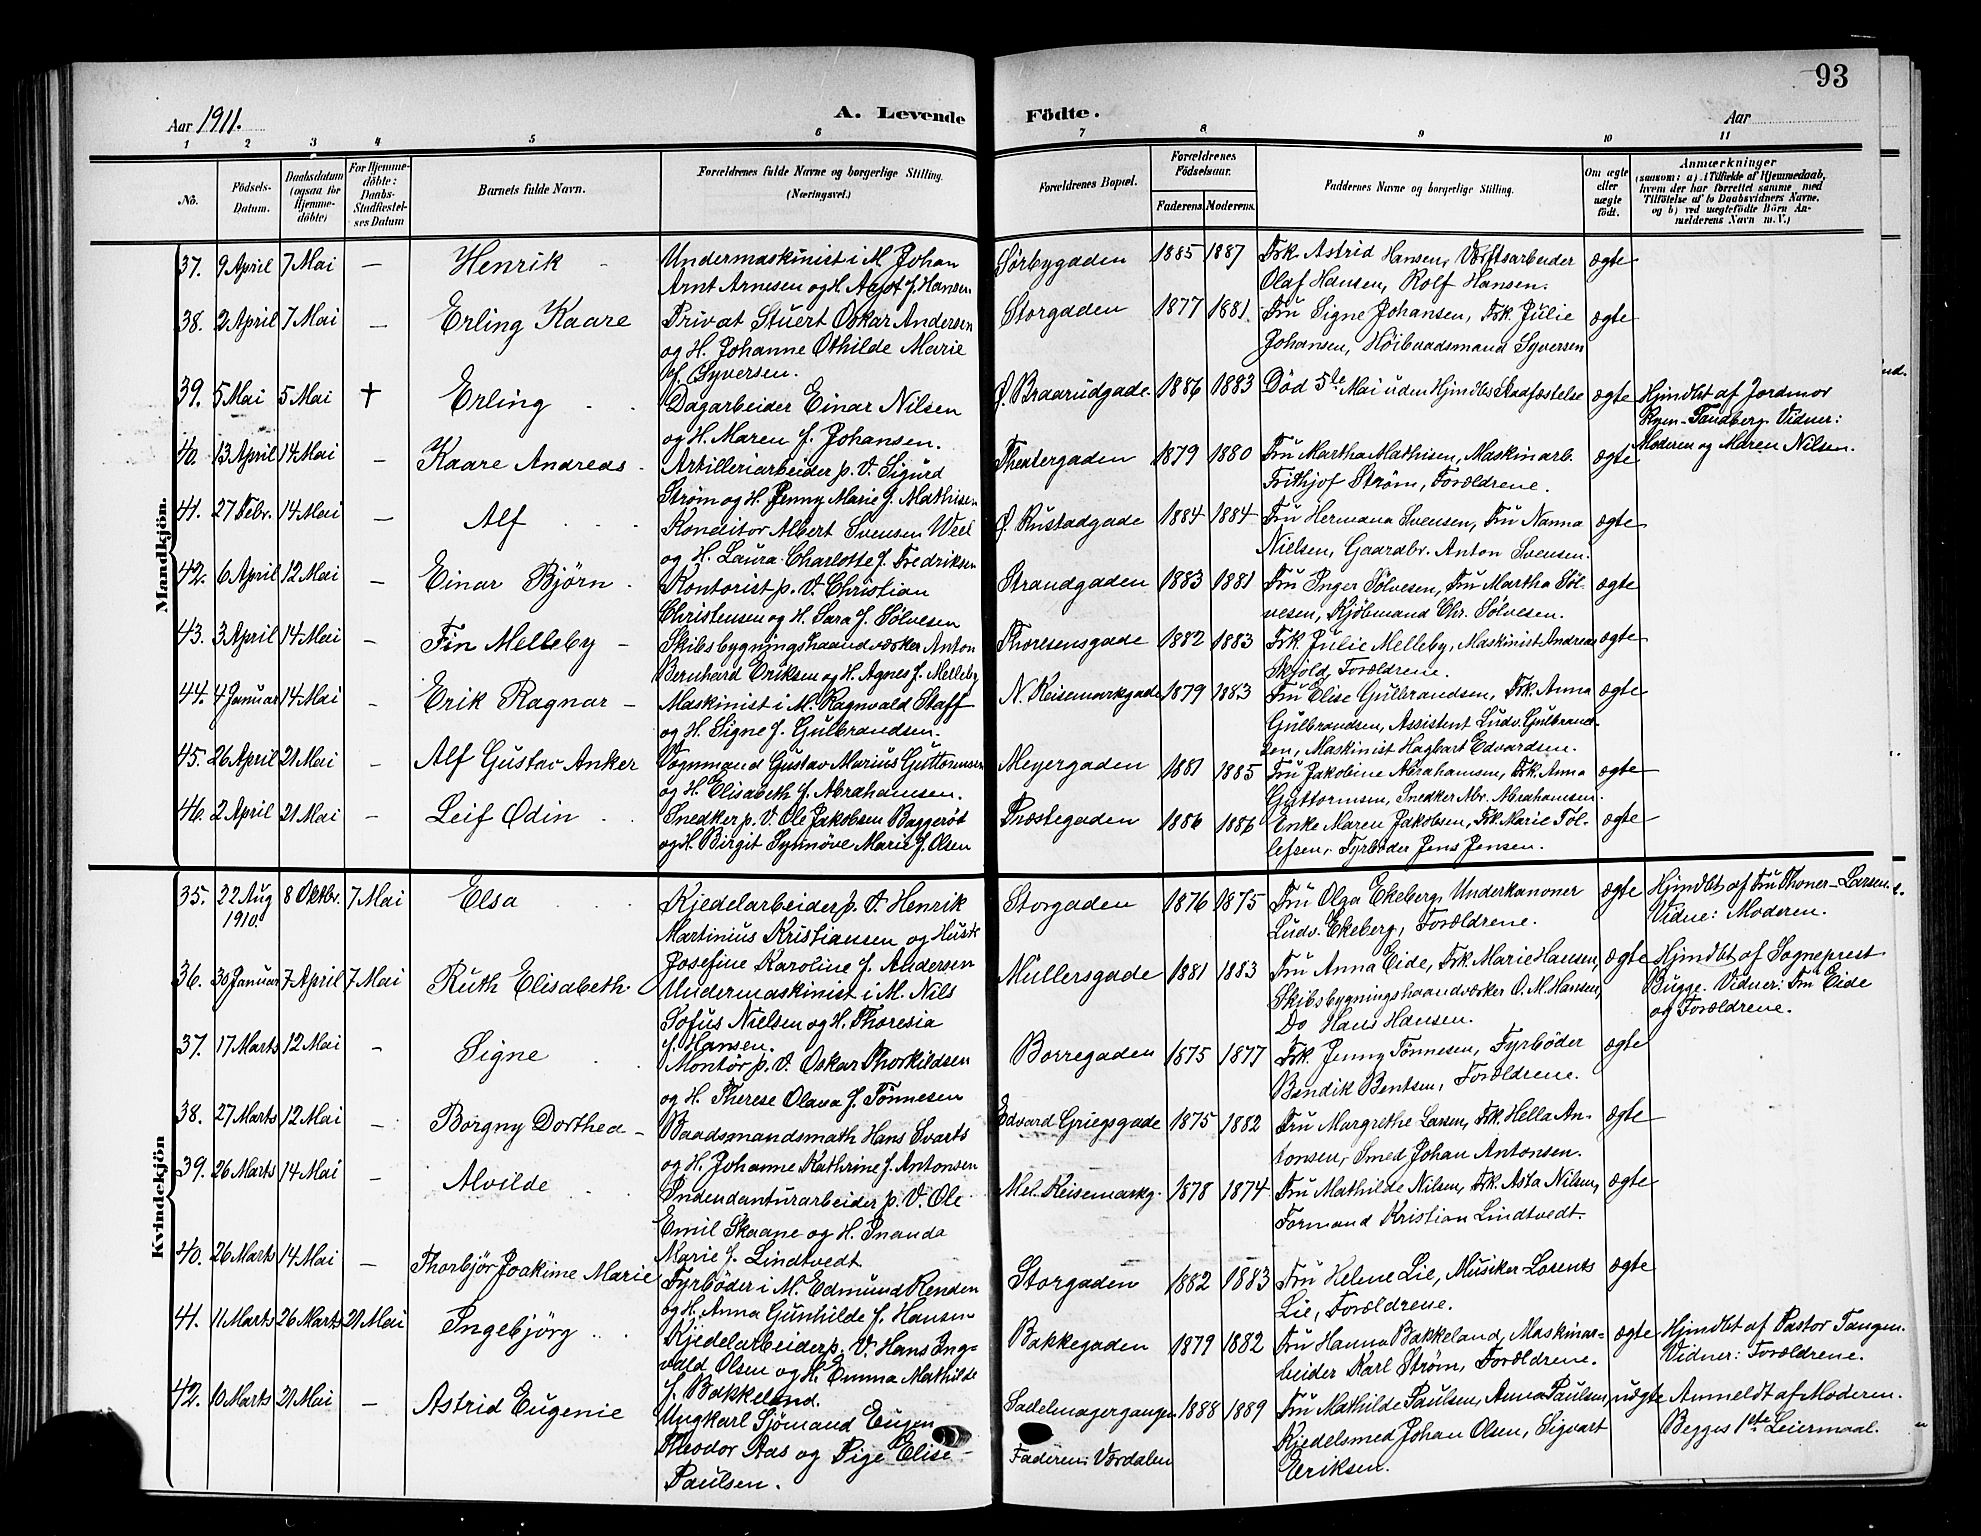 93
Aar 1911.
A. Levende Födte.
Aar
1 2 3 4 5 6 7 8 9 10 11
No.
Födsels-Datum.
Daabsdatum (ogsaa for Hjemmedöbte)
For Hjemmedöbte: Daabs-Stadfæstelses Datum
Barnets fulde Navn.
Forældrenes fulde Navne og borgerlige Stilling. (Næringsvei.)
Forældrenes Bopæl.
Forældrenes Födselsaar.
Faderens. Moderens.
Faddernes Navne og borgerlige Stilling.
Om ægte eller uægte födt.
Anmærkninger
(saasom: a) i Tilfælde af Hjemmedaab, hvem der har forrettet samme med Tilföielse af to Daabsvidners Navne, og b) ved uægtefödte Börn Anmelderens Navn m. V.)
Mandkjön.
37. 9 April 7 Mai — Henrik - Undermaskinist i M. Johan Sörbygaden 1885 1887 Frk. Astrid Hansen, Værftsarbeider ægte
Arnt Arnesen og H. Agot f. Hansen Olaf Hansen, Rolf Hansen.
38. 2 April 7 Mai — Erling Kaare Privat Stuert Oskar Andersen Storgaden 1877 1881 Fru Signe Johansen, Frk. Julie ægte
og H. Johanne Othilde Marie Johansen, Höibaadsmand Syversen
f. Syversen.
39. 5 Mai 5 Mai † Erling Dagarbeider Einar Nilsen Ö. Braarudgade 1886 1883 Död 5te Mai uden Hjmdbs Stadfæstelse ægte Hjmdbt af Jordmor
og H. Maren f. Johansen. Ryen-Tandberg. Vidner:
40. 13 April 14 Mai — Kaare Andreas Artilleriarbeider p. V. Sigurd Theatergaden 1879 1880 Fru Martha Mathisen, Maskinarb. ægte Moderen og Maren Nilsen.
Ström og H. Jenny Marie f. Mathisen Frithjof Ström, Forældrene.
41. 27 Febr. 14 Mai — Alf Konditor Albert Svensen Weel Ö. Rustadgade 1884 1884 Fru Hermana Svensen, Fru Nanna ægte
og H. Laura Charlotte f. Fredriksen Nielsen, Gaardbr. Anton Svensen.
42. 6 April 12 Mai — Einar Björn Kontorist p. V. Christian Strandgaden 1883 1881 Fru Inger Sölvesen, Fru Martha Söl- ægte
Christensen og H. Sara f. Sölvesen vesen, Kjöbmand Chr. Sölvesen.
43. 3 April 14 Mai — Fin Melleby Skibsbygningshaandværker Anton Thoresensgade 1882 1883 Frk. Julie Melleby, Maskinist Andreas ægte
Bernhard Eriksen og H. Agnes f. Melleby Skjold, Forældrene.
44. 4 Januar 14 Mai — Erik Ragnar — Maskinist i M. Ragnvald Staff N. Keisemarkgade 1879 1883 Fru Elise Gulbrandsen, Frk. Anna ægte
og H. Signe f. Gulbrandsen. Gulbrandsen, Assistent Ludv. Gulbrand-
sen, Maskinist Hagbart Edvardsen.
45. 26 April 21 Mai — Alf Gustav Anker Vognmand Gustav Marius Guttormsen Meyergaden 1881 1885 Fru Jakobine Abrahamsen, Frk. Anna ægte
og H. Elisabeth f. Abrahamsen. Guttormsen, Snedker Abr. Abrahamsen.
46. 2 April 21 Mai — Leif Odin Snedker p. V. Ole Jakobsen Baggeröd Præstegaden 1886 1886 Enke Maren Jakobsen, Frk. Marie Tol- ægte
og H. Birgit Synnöve Marie f. Olsen lefsen, Fyrböder Jens Jensen.
Kvindekjön
35. 22 Aug 8 Oktbr. 7 Mai Elsa Kjedelarbeider p. V. Henrik Storgaden 1876 1875 Fru Olga Ekeberg, Underkanoner ægte Hjmdbt af Fru Thoner-Larsen.
1910. Martinius Kristiansen og Hustr. Ludv. Ekeberg, Forældrene. Vidne: Moderen.
Josefine Karoline f. Andersen
36. 30 Januar 7 April 7 Mai Ruth Elisabeth Undermaskinist i M. Nils Müllersgade 1881 1883 Fru Anna Eide, Frk. Marie Hansen, ægte Hjmdbt af Sogneprest
Sofus Nielsen og H. Theresia Skibsbygningshaandværker O. M. Hansen, Bugge. Vidner: Fru Eide
f. Hansen. Do Hans Hansen. og Forældrene.
37. 17 Marts 12 Mai — Signe Montör p. V. Oskar Thorkildsen Borregaden 1875 1877 Frk. Jenny Tönnesen, Fyrböder ægte
og H. Therese Olava f. Tönnesen Bendik Bentsen, Forældrene.
38. 27 Marts 12 Mai — Borgny Dorthea — Baadsmandsmath Hans Svarts Edvard Griegsgade 1875 1882 Fru Margrethe Larsen, Frk. Hella An- ægte
og H. Johanne Kathrine f. Antonsen tonsen, Smed Johan Antonsen.
39. 26 Marts 14 Mai — Alvilde Indendanturarbeider p. V. Ole Mel. Keisemarkg. 1878 1874 Fru Mathilde Nilsen, Frk. Asta Nilsen, ægte
Emil Skaane og H. Inanda Formand Kristian Lindtvedt.
Marie f. Lindtvedt
40. 26 Marts 14 Mai — Thorbjör Joakime Marie Fyrböder i M. Edmund Renden Storgaden 1882 1883 Fru Helene Lie, Musiker Lorents ægte
og H. Anna Gunhilde f. Hansen Lie, Forældrene.
41. 11 Marts 26 Marts 21 Mai Ingebjörg Kjedelarbeider p. V. Hans Ing- Bakkegaden 1879 1882 Fru Hanna Bakkeland, Maskinar- ægte Hjmdbt af Pastor Tangen.
vald Olsen og H. Emma Mathilde beider Karl Ström, Forældrene. Vidner: Forældrene.
f. Bakkeland.
42. 10 Marts 21 Mai — Astrid Eugenie Ungkarl Sjömand Eugen Sadelmagergangen 1888 1889 Fru Mathilde Paulsen, Anna Paulsen, uægte Anmeldt af Moderen.
Theodor Aas og Pige Elise Faderen: Værdalen Kjedelsmed Johan Olsen, Sigvart Begges 1ste Leiermaal.
Paulsen. Eriksen.